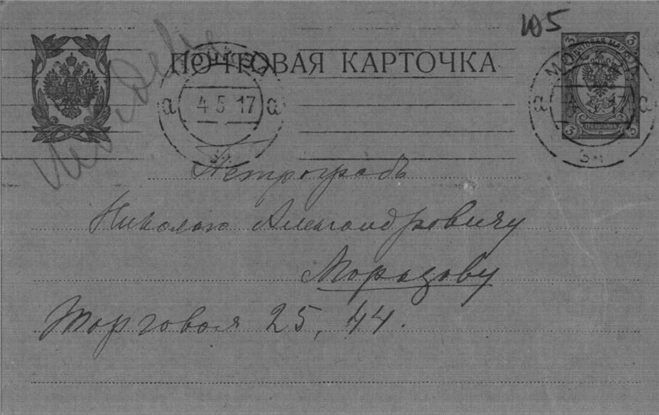 105
ПОЧТОВАЯ КАРТОЧКА
МОСКВА
а 4.5.17 а
а 4.5.17 а
Петроградъ
Николаю Александровичу
Морозову
Торговая 25, 44.